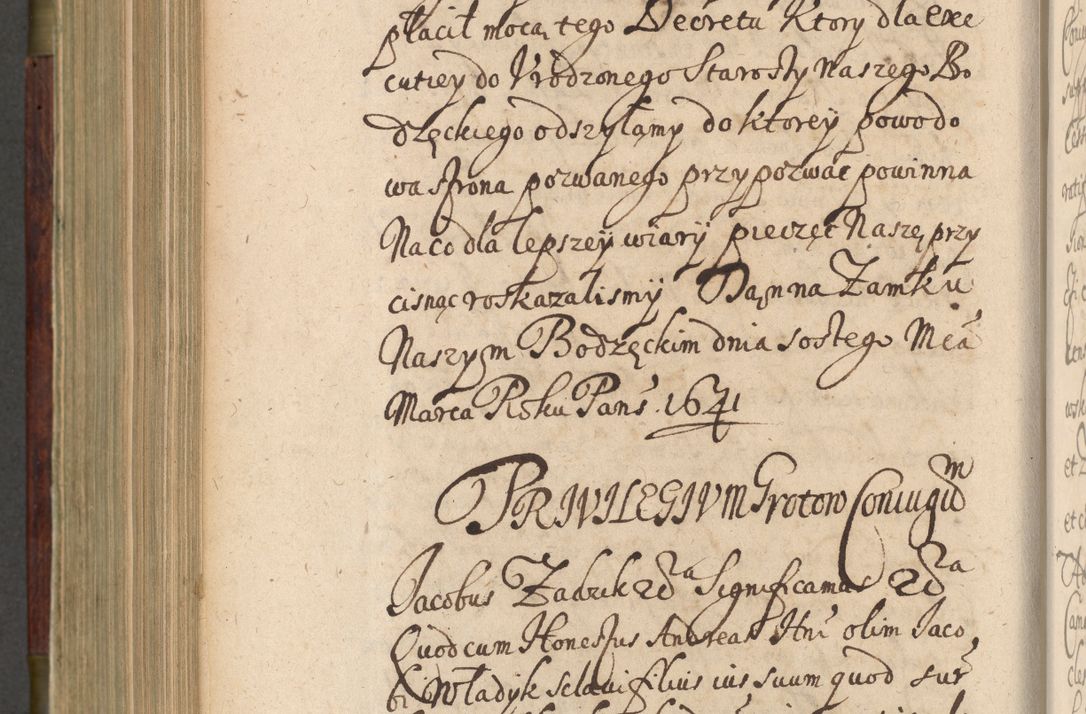 płacił mocą tego Decretu Ktory dla exe
cutiey do Vrodzonego Starosty Naszego Bo
dzęckiego odszyłamy do ktorey powodo
wa strona pozwanego przypozwać powinna
Na co dla lepszey wiary pieczęć Naszę przy
cisnąc roskazalismy Dan na Zamku
Naszym Bodzęckim dnia sostego Mca
Marca Roku Pans 1641
PRIVILEGIVM Grotow Coniugum
Jacobus Zadzik etca Significamus etca
Quod cum Honestus Andreas Hni olim Jaco
bi Władyk sclavi filius ius suum quod sur